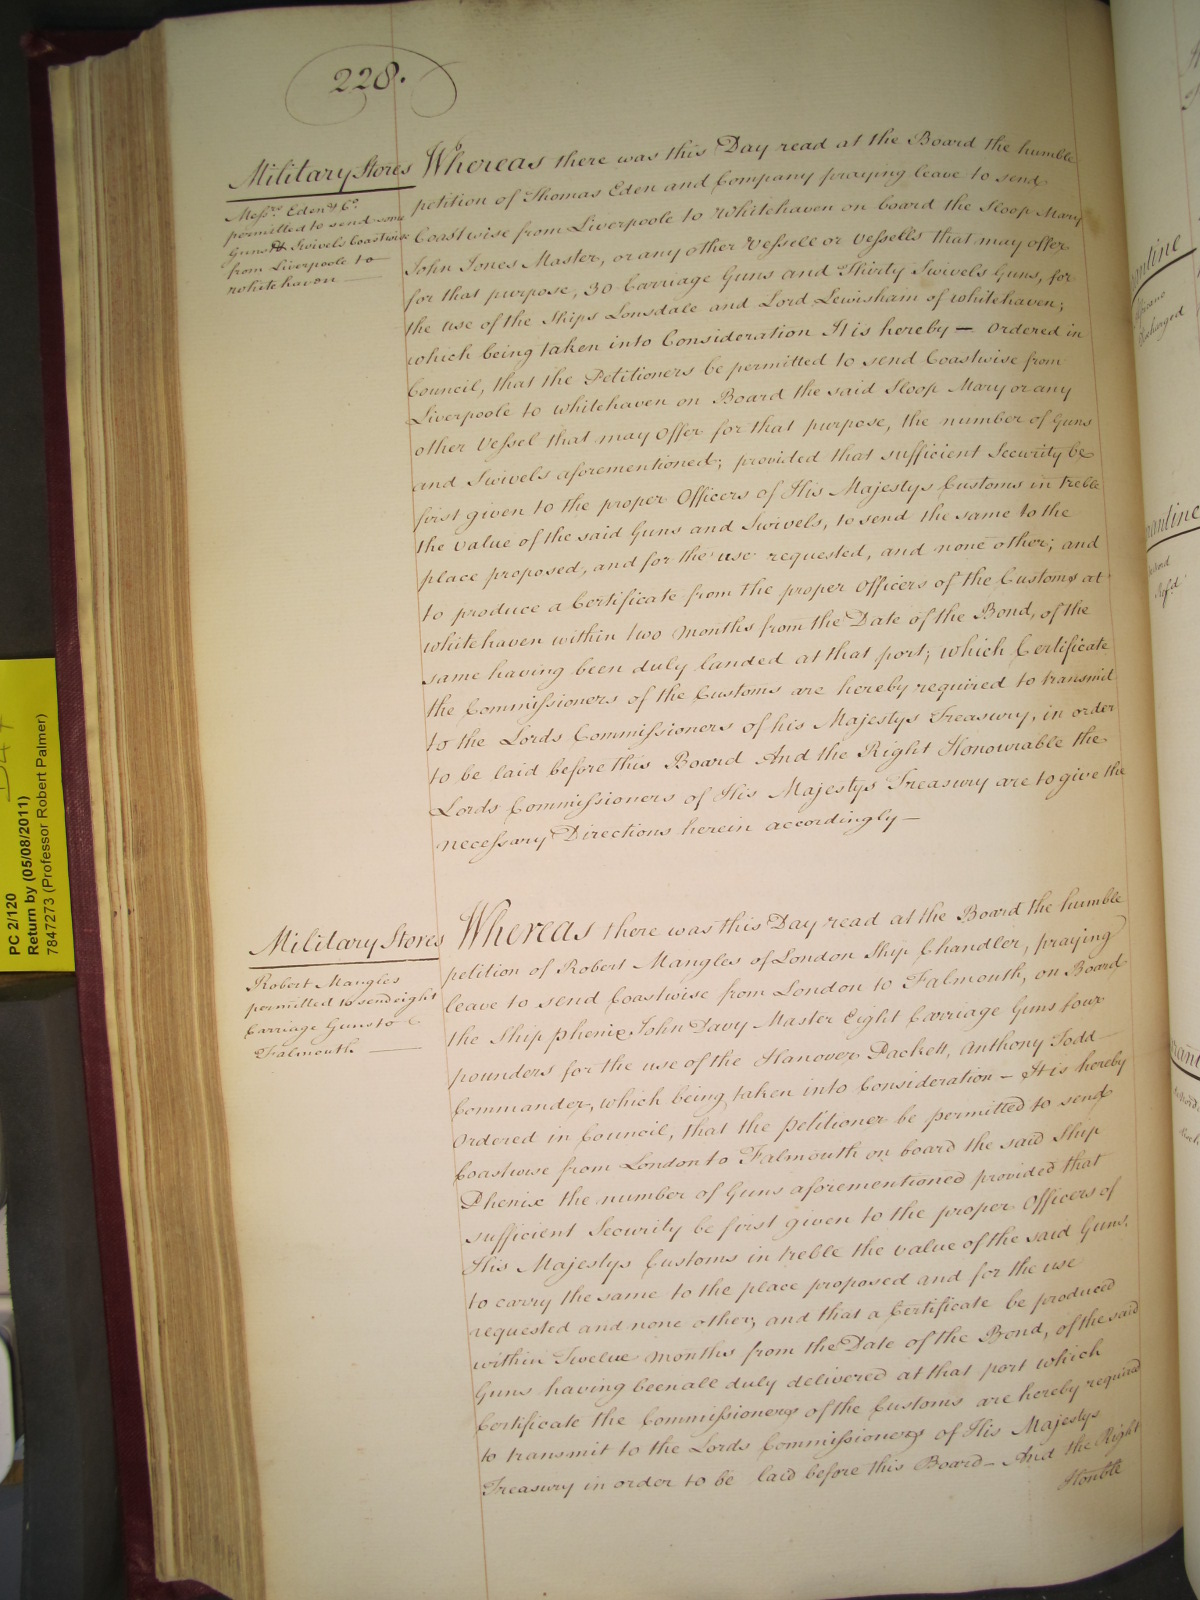 228.
Military Stores
Messrs. Eden & Co.
permitted to send some
Guns & Swivels Coastwise
from Liverpoole to
Whitehaven
Whereas there was this Day read at the Board the humble
petition of Thomas Eden and Company praying leave to send
Coastwise from Liverpoole to Whitehaven on board the Sloop Mary
John Jones Master, or any other Vessell or Vessells that may offer
for that purpose, 30 Carriage Guns and Thirty Swivels Guns, for
the use of the Ships Lonsdale and Lord Lewisham of Whitehaven;
which being taken into Consideration It is hereby — Ordered in
Council, that the Petitioners be permitted to send Coastwise from
Liverpoole to Whitehaven on Board the said Sloop Mary or any
other Vessel that may Offer for that purpose, the number of Guns
and Swivels aforementioned; provided that sufficient Security be
first given to the proper Officers of His Majestys Customs in treble
the value of the said Guns and Swivels, to send the same to the
place proposed, and for the use requested, and none other; and
to produce a Certificate from the proper Officers of the Customs at
Whitehaven within two Months from the Date of the Bond, of the
same having been duly landed at that port; which Certificate
the Commissioners of the Customs are hereby required to transmit
to the Lords Commissioners of his Majestys Treasury, in order
to be laid before this Board And the Right Honourable the
Lords Commissioners of His Majestys Treasury are to give the
necessary Directions herein accordingly —
Military Stores
Robert Mangles
permitted to send eight
Carriage Guns to
Falmouth
Whereas there was this Day read at the Board the humble
petition of Robert Mangles of London Ship Chandler, praying
leave to send Coastwise from London to Falmouth, on Board
the Ship Phenix John Davy Master Eight Carriage Guns four
pounders for the use of the Hanover Packett, Anthony Todd
Commander, which being taken into Consideration — It is hereby
Ordered in Council, that the petitioner be permitted to send
Coastwise from London to Falmouth on board the said Ship
Phenix the number of Guns aforementioned provided that
sufficient Security be first given to the proper Officers of
His Majestys Customs in treble the value of the said Guns,
to carry the same to the place proposed and for the use
requested and none other; and that a Certificate be produced
within Twelve Months from the Date of the Bond, of the said
Guns having been all duly delivered at that port which
Certificate the Commissioners of the Customs are hereby required
to transmit to the Lords Commissioners of His Majestys
Treasury in order to be laid before this Board — And the Right
Honble
PC 2/120
Return by (05/08/2011)
7847273 (Professor Robert Palmer)
antine
discharged
rantine